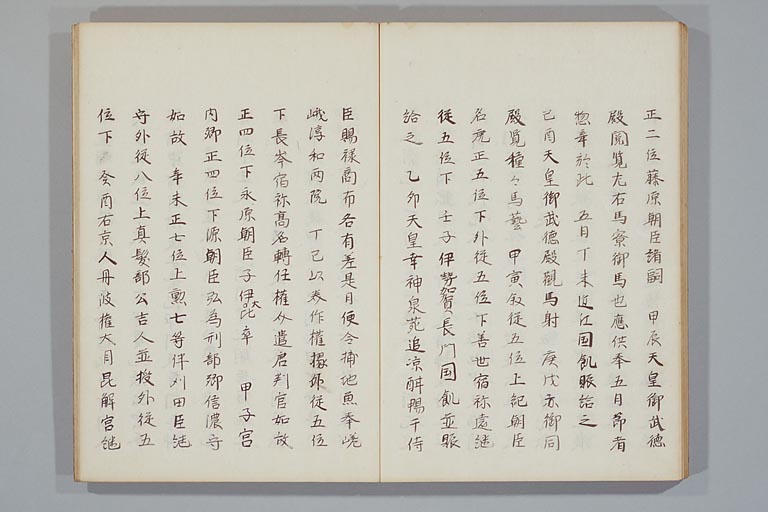 正二位藤原朝臣諸嗣　甲辰天皇御武徳
殿閲覧左右馬寮御馬也應供奉五月節者
惣奉於此　五月丁未近江国飢賑給之
己酉天皇御武徳殿觀馬射　庚戌亦御同
殿覧種々馬藝　甲寅叙従五位上紀朝臣
名虎正五位下外従五位下善世宿祢遠継
従五位下　壬子伊勢賀長門国飢並賑
給之　乙卯天皇幸神泉苑追凉酣暢于侍
臣賜禄商布各有差是日使令捕池魚奉嵯
峨淳和両院　丁巳以参作權掾従五位
下長岑宿祢高名轉任權介遣唐判官如故
正四位下永原朝臣子伊太比卒　甲子宮
内卿正四位下源朝臣弘為刑部卿信濃守
如故　辛未正七位上勲七等伴刈田臣継
守外従八位上真髪部公吉人並授外従五
位下　癸酉右京人丹波權大目昆解宮継